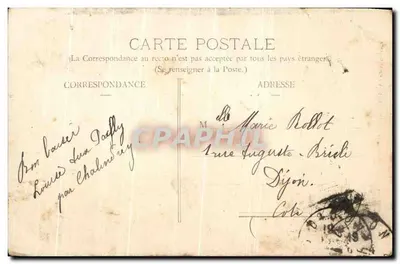 CARTE POSTALE
(La Correspondance au recto n'est pas acceptée par tous les pays étrangers
(Se renseigner à la Poste.)
CORRESPONDANCE
ADRESSE
Bon baiser
par Chalindrey
Mlle Marie Rollot
rue Auguste
Dijon
Cote
DIJON